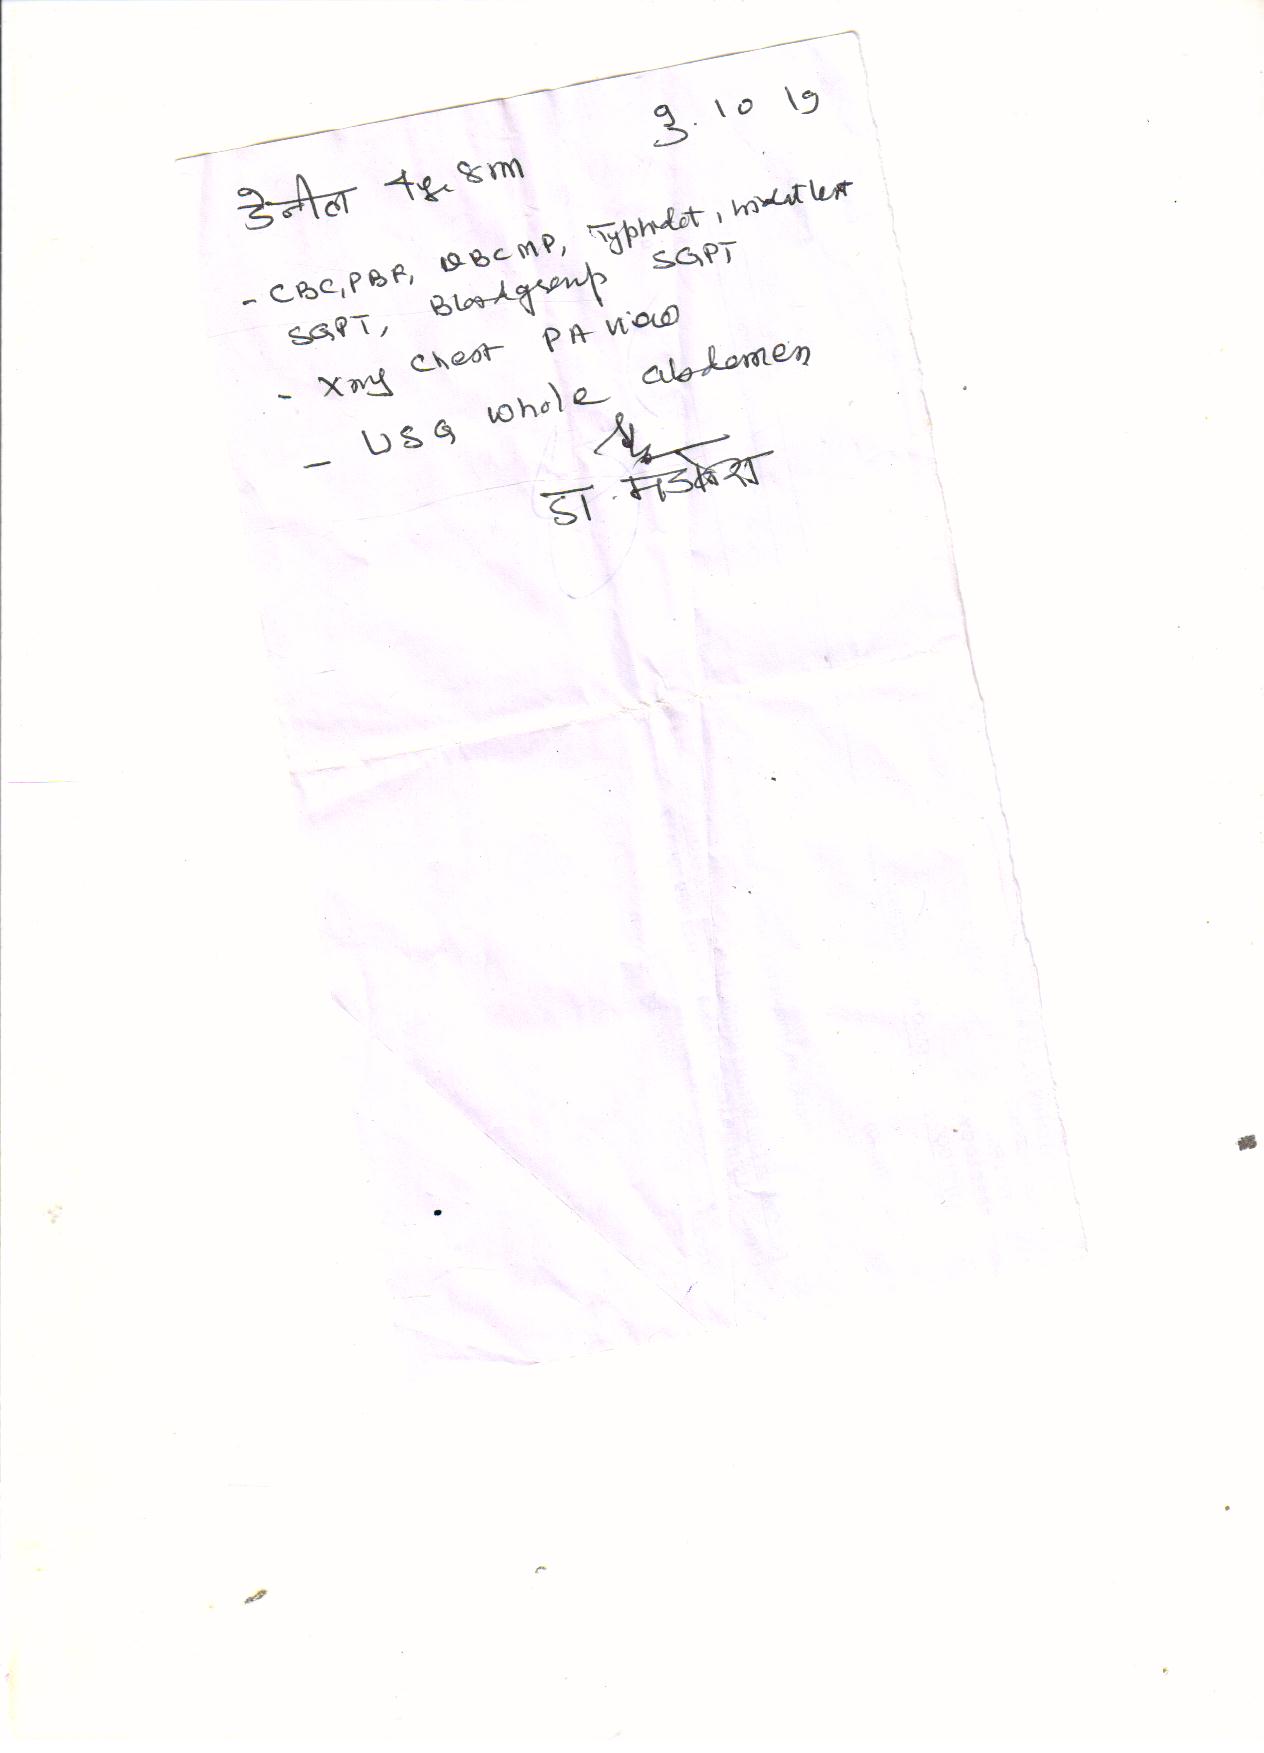 9.10 19
डेनील 4y. 8m
- CBC, PBF, QBCMP, Typhidot, widal test
SGPT, Bloodgroup SGPT
- Xray Chest PA view
- USG whole abdomen
डा.